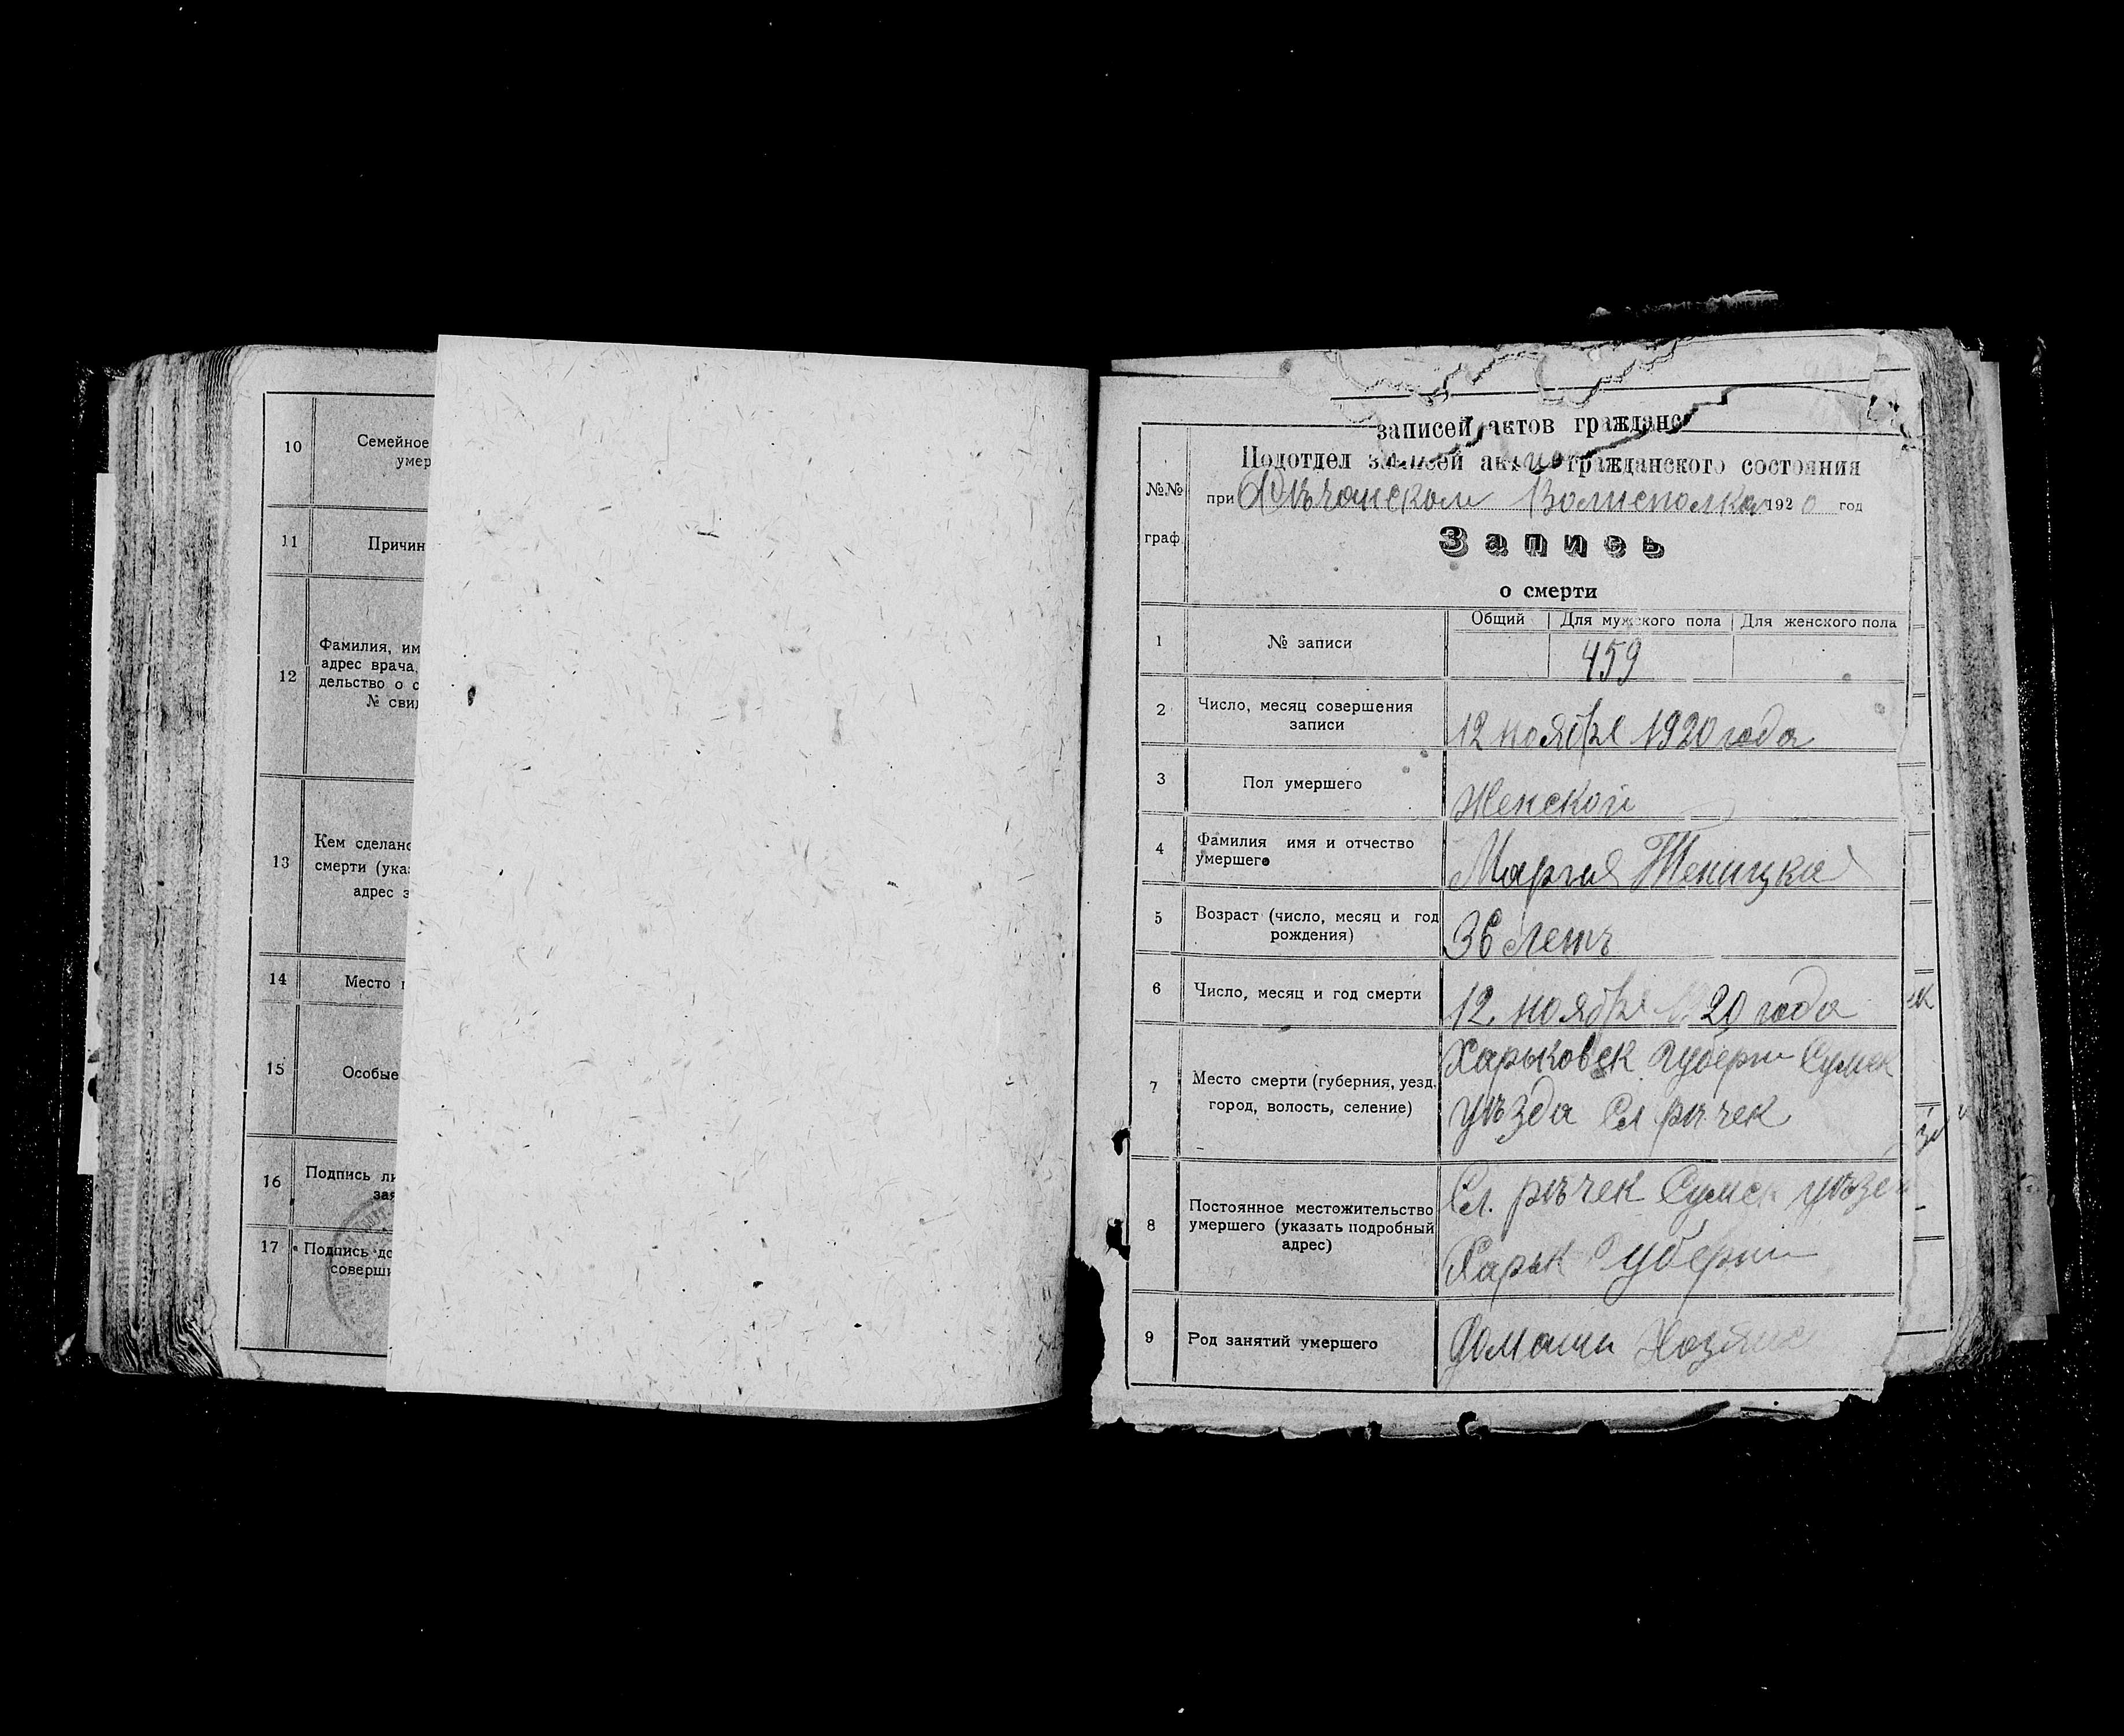 10
Семейное
умер
11
Причин
12
Фамилия, им
адрес врача,
дельство о с
№ свид
13
Кем сделано
смерти (указ
адрес з
14
Место п
15
Особые
16
Подпись ли
зая
17
Подпись до
соверши
записей актов гражданс
Подотдел записей актов гражданского состояния
№№ граф.
при Рѣчанском Волисполком 1920 год
Запись
о смерти
Общий Для мужского пола Для женского пола
1 № записи 459
2 Число, месяц совершения
записи
12 ноября 1920 года
3 Пол умершего Женской
4 Фамилия имя и отчество
умершего
Мария
5 Возраст (число, месяц и год
рождения)
36 летъ
6 Число, месяц и год смерти 12 ноября 20 года
7 Место смерти (губерния, уезд,
город, волость, селение)
Харьковск Губерн Сумск
уѣзда Сл рѣчек
8 Постоянное местожительство
умершего (указать подробный
адрес)
Сл. рѣчек Сумск уѣзд
Харьк Губерни
9 Род занятий умершего Домашн Хозяис